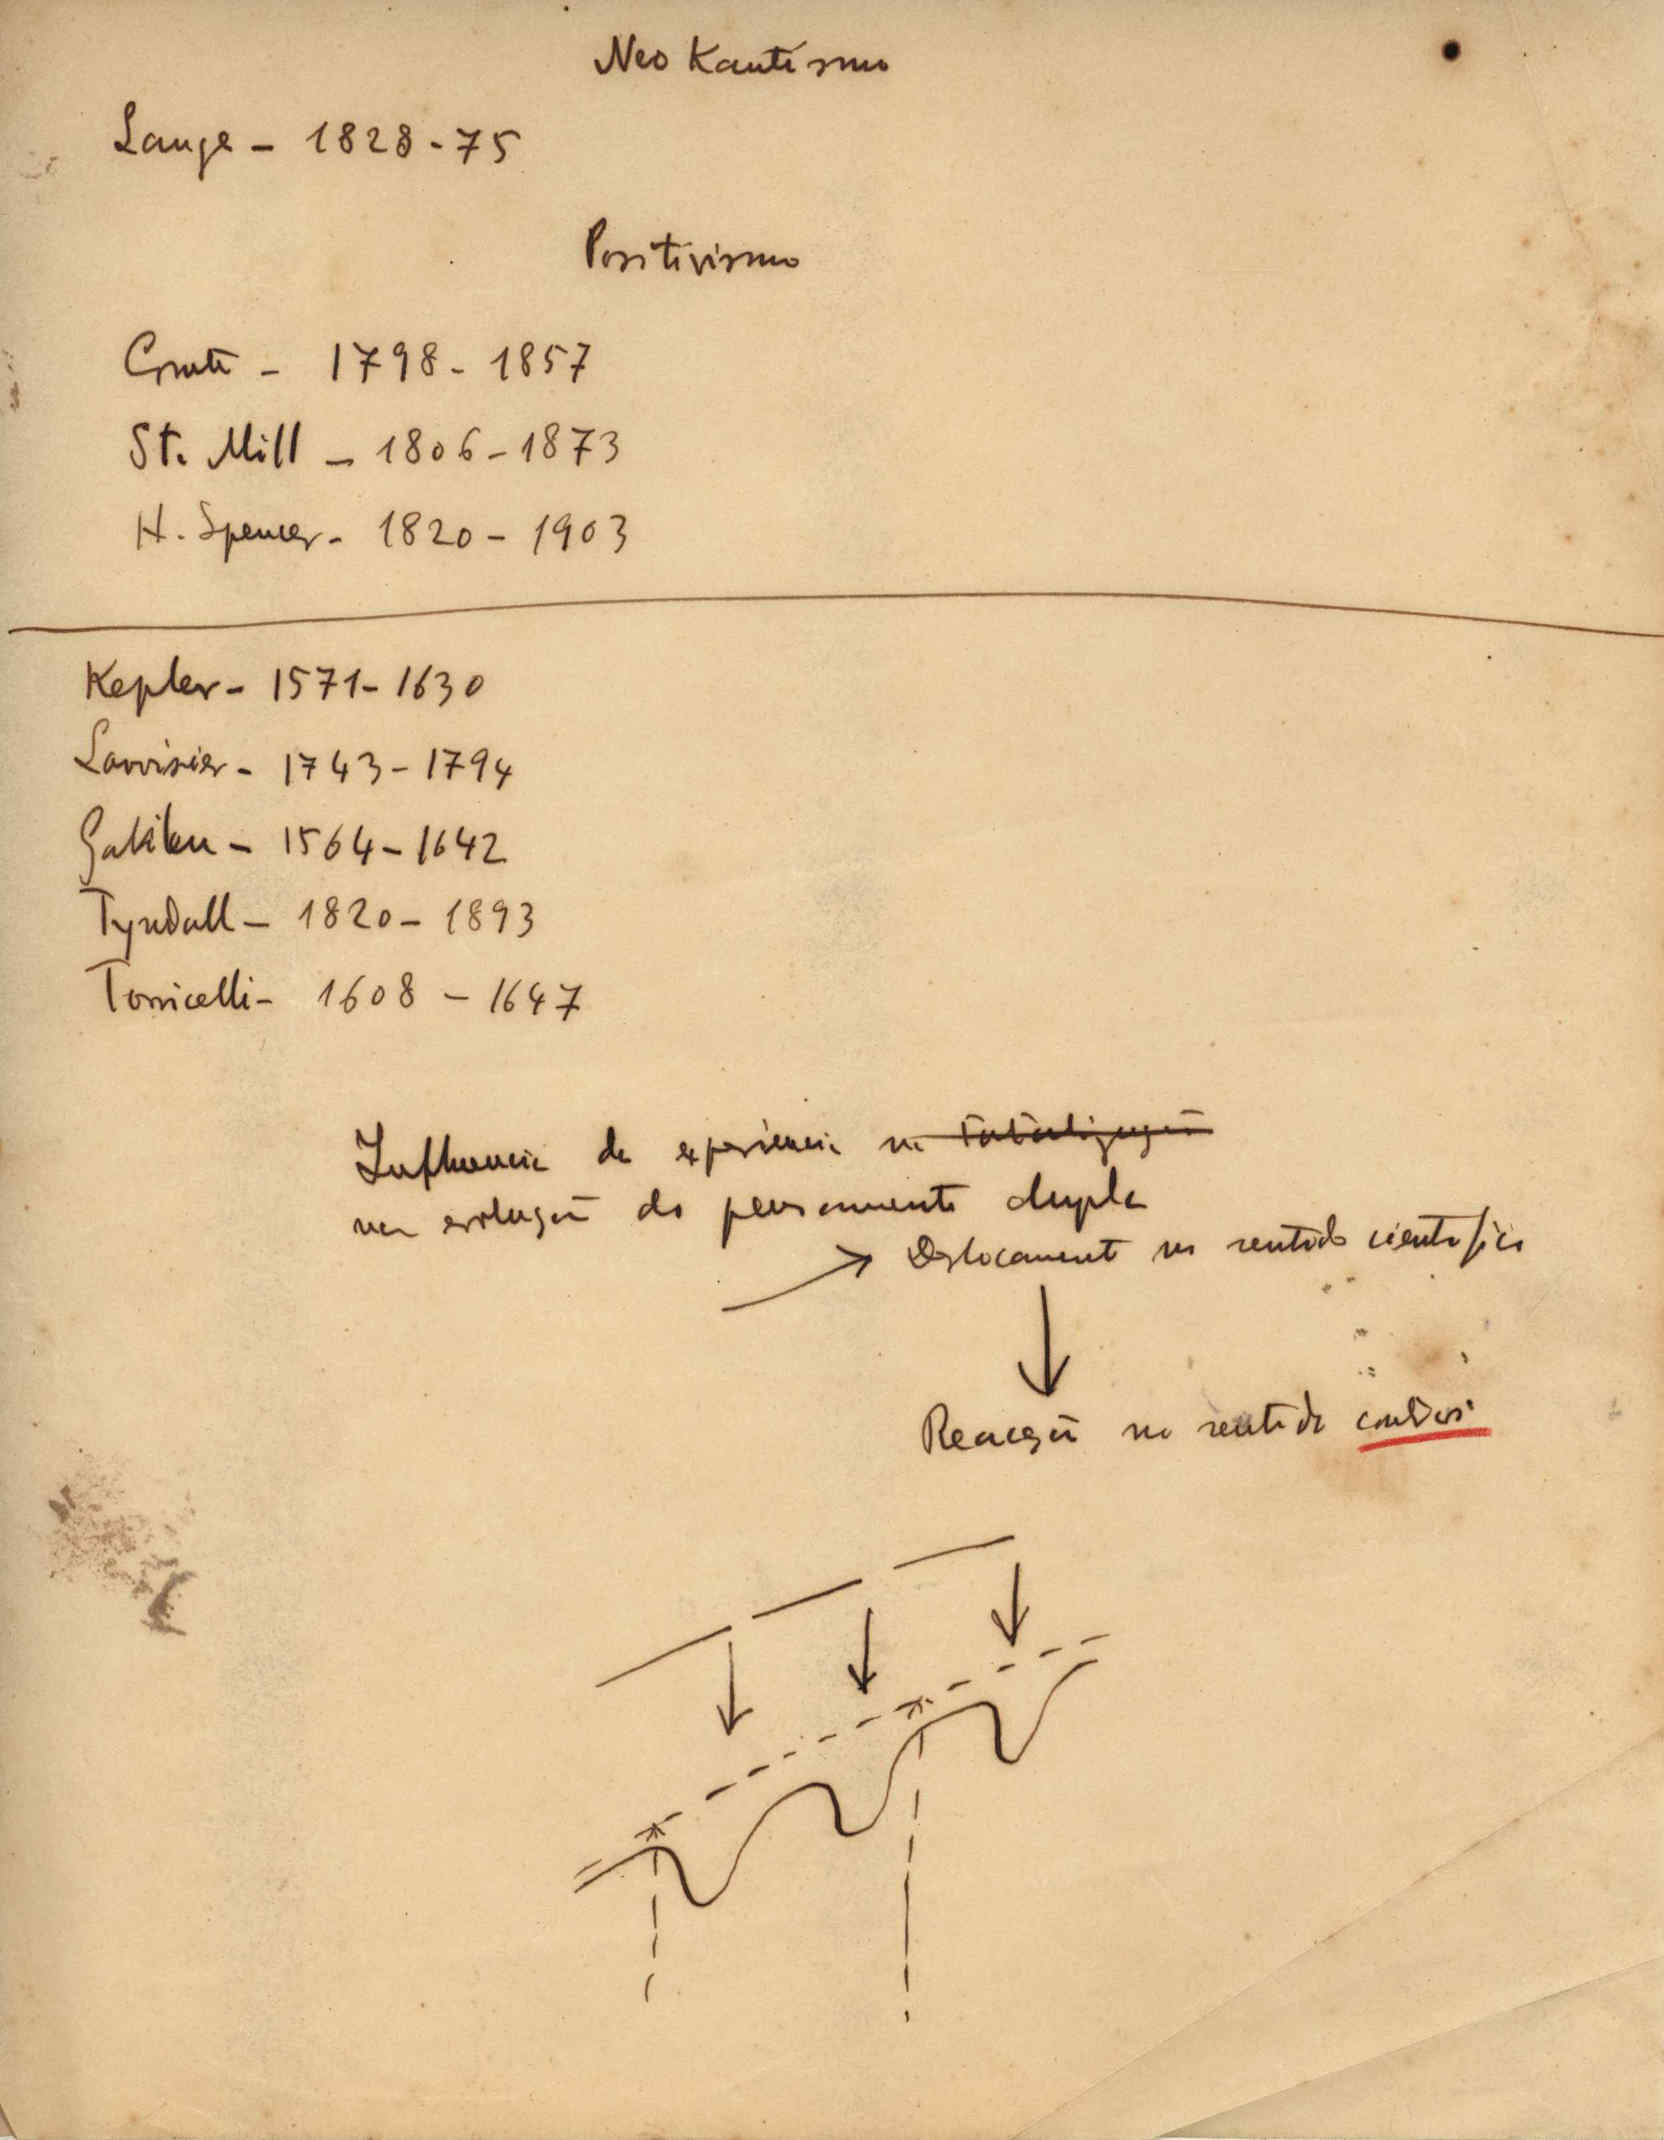 Neo Kantismo
Lange - 1828-75
Positivismo
Comte - 1798-1857
St. Mill - 1806-1873
H. Spencer - 1820-1903
Kepler - 1571-1630
Lavoisier - 1743-1794
Galileu - 1564-1642
Tyndall - 1820-1893
Torricelli - 1608-1647
Influencia da experiencia na totalização
na evolução do pensamento dupla
Deslocamento no sentido cientifico
Reacção no sentido